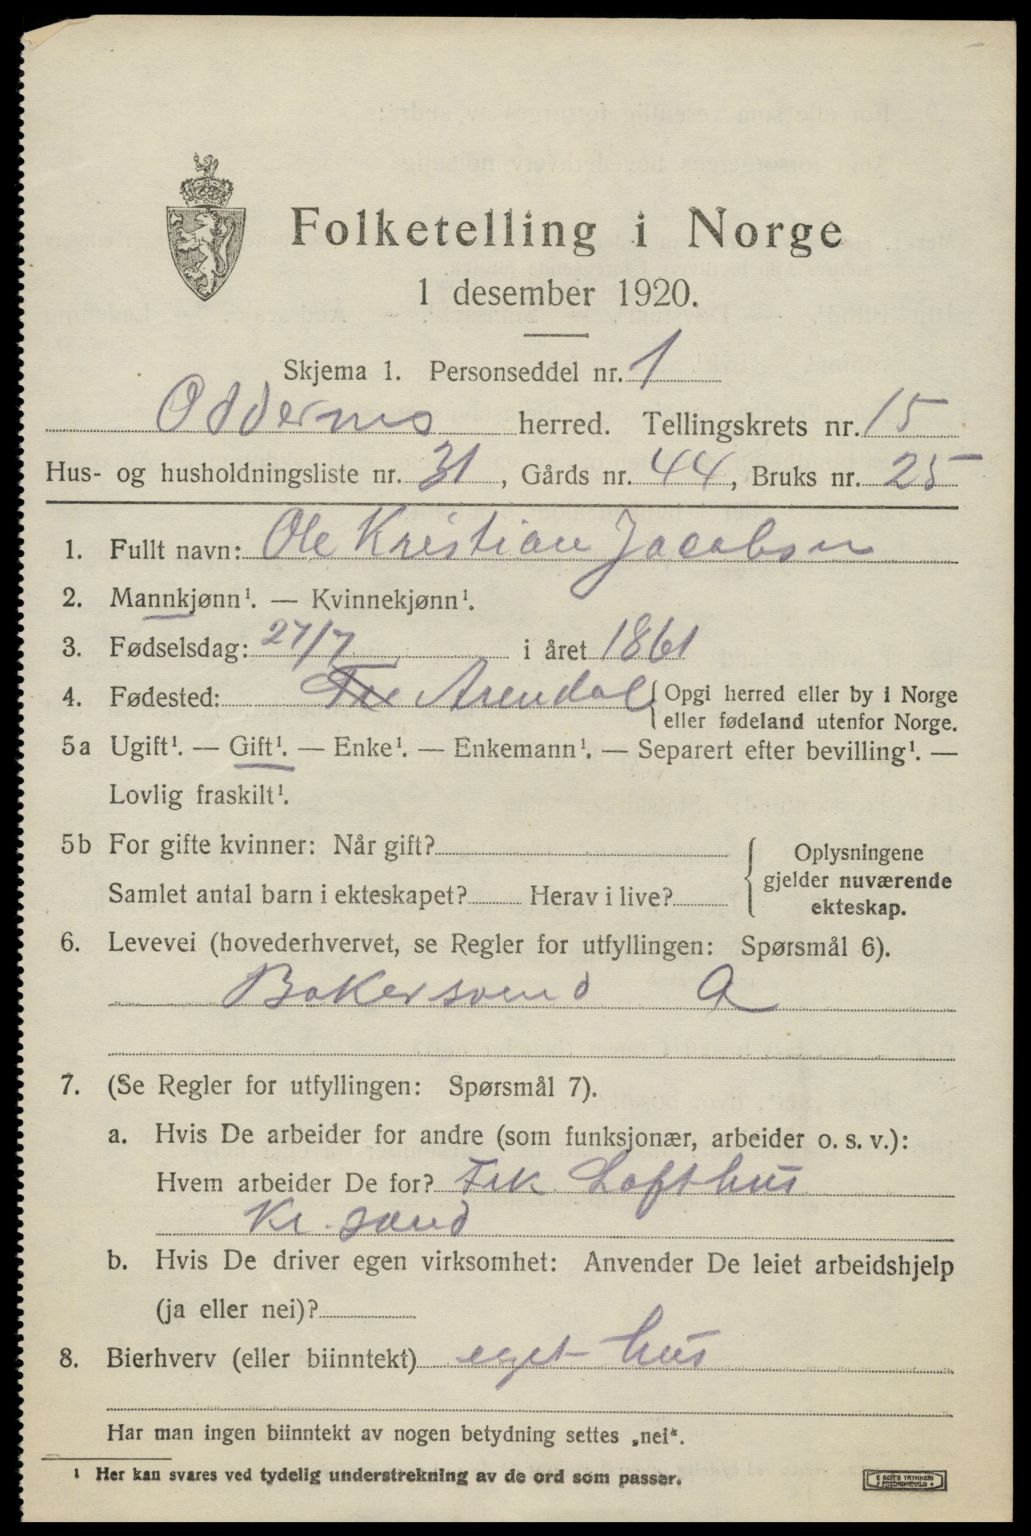 Folketelling i Norge
1 desember 1920.
Skjema 1. Personseddel nr. 1
Oddernes herred. Tellingskrets nr. 15
Hus- og husholdningsliste nr. 31, Gårds nr. 44, Bruks nr. 25
1. Fullt navn: Ole Kristian Jacobsen
2. Mannkjønn¹. — Kvinnekjønn¹.
3. Fødselsdag: 27/7 i året 1861
4. Fødested: Arendal {Opgi herred eller by i Norge
eller fødeland utenfor Norge.
5a Ugift¹. — Gift¹. — Enke¹. — Enkemann¹. — Separert efter bevilling¹. —
Lovlig fraskilt¹.
5b For gifte kvinner: Når gift?
Samlet antal barn i ekteskapet? Herav i live?
Oplysningene
gjelder nuværende
ekteskap.
6. Levevei (hovederhvervet, se Regler for utfyllingen: Spørsmål 6).
Bakersvend A
7. (Se Regler for utfyllingen: Spørsmål 7).
a. Hvis De arbeider for andre (som funksjonær, arbeider o. s. v.):
Hvem arbeider De for? Frk Lofthus
Kr. sand
b. Hvis De driver egen virksomhet: Anvender De leiet arbeidshjelp
(ja eller nei)?
8. Bierhverv (eller biinntekt) eget hus
Har man ingen biinntekt av nogen betydning settes „nei“.
¹ Her kan svares ved tydelig understrekning av de ord som passer.